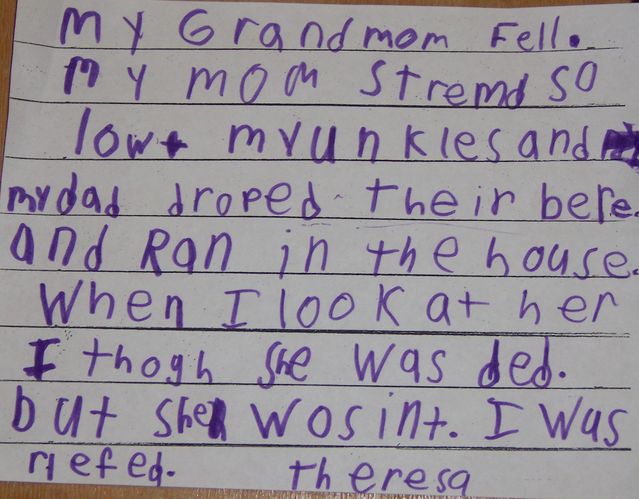 My Grandmom Fell.
My mom stremd so
lowt myunkles and
my dad droped their bere.
and Ran in the house.
When I look at her
I thogh she was ded.
but she wosint. I was
riefed. theresa